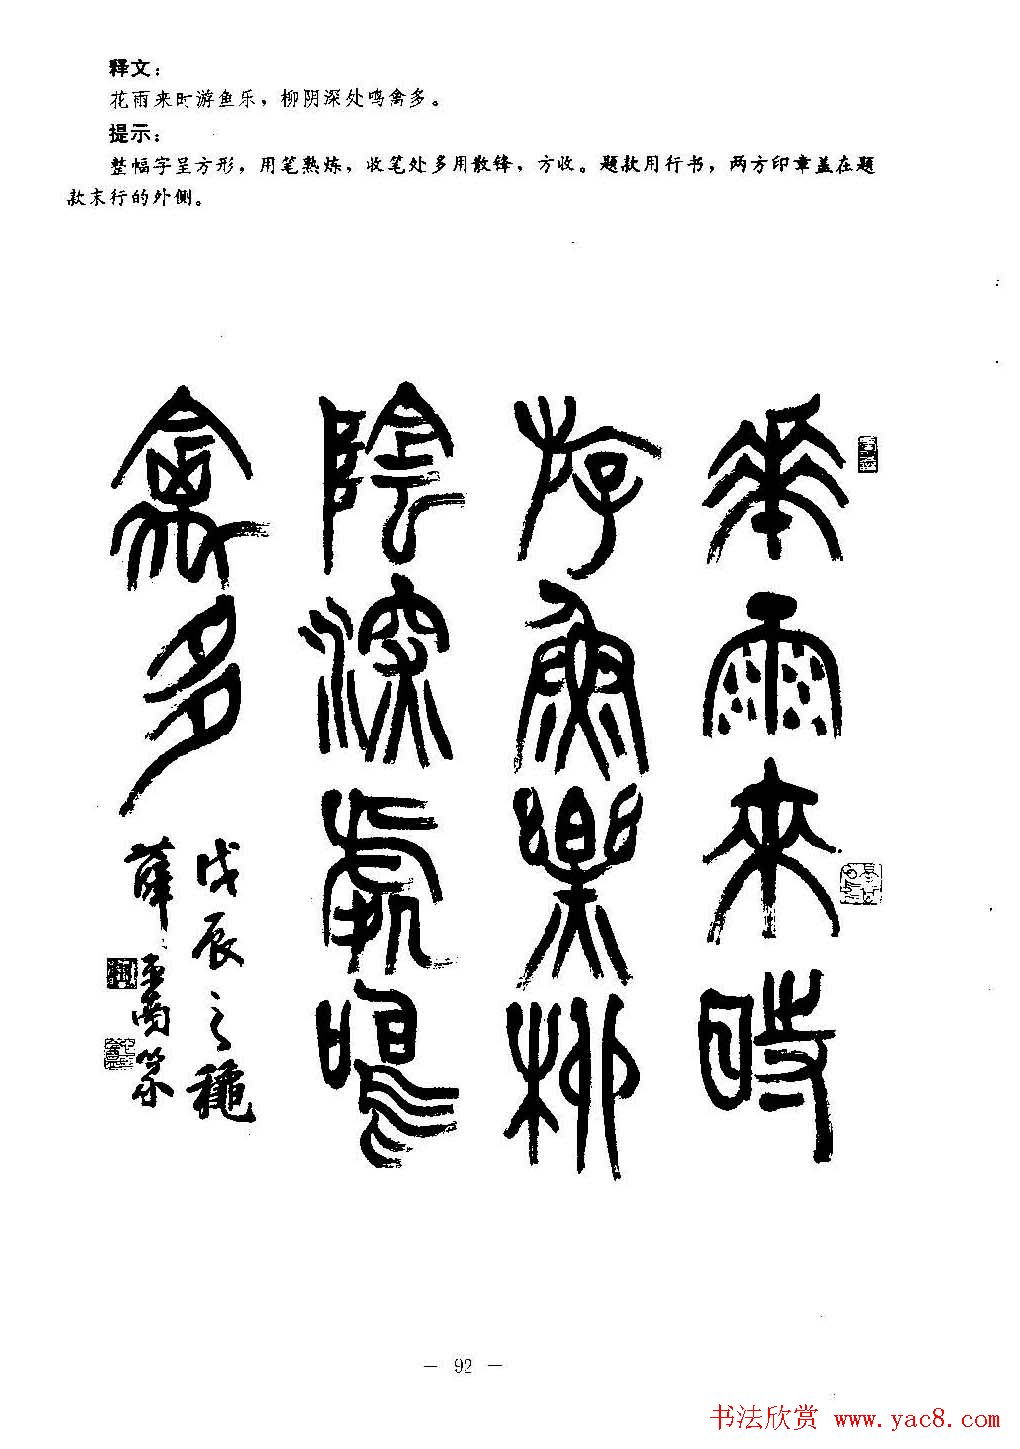 释文：
花雨来时游鱼乐，柳阴深处鸣禽多。
提示：
整幅字呈方形，用笔熟炼，收笔处多用散锋，方收。题款用行书，两方印章盖在题
款末行的外侧。
華雨來時
游魚樂柳
陰深處鳴
禽多
戊辰之穐
薛
篆
— 92 —
书法欣赏 www.yac8.com